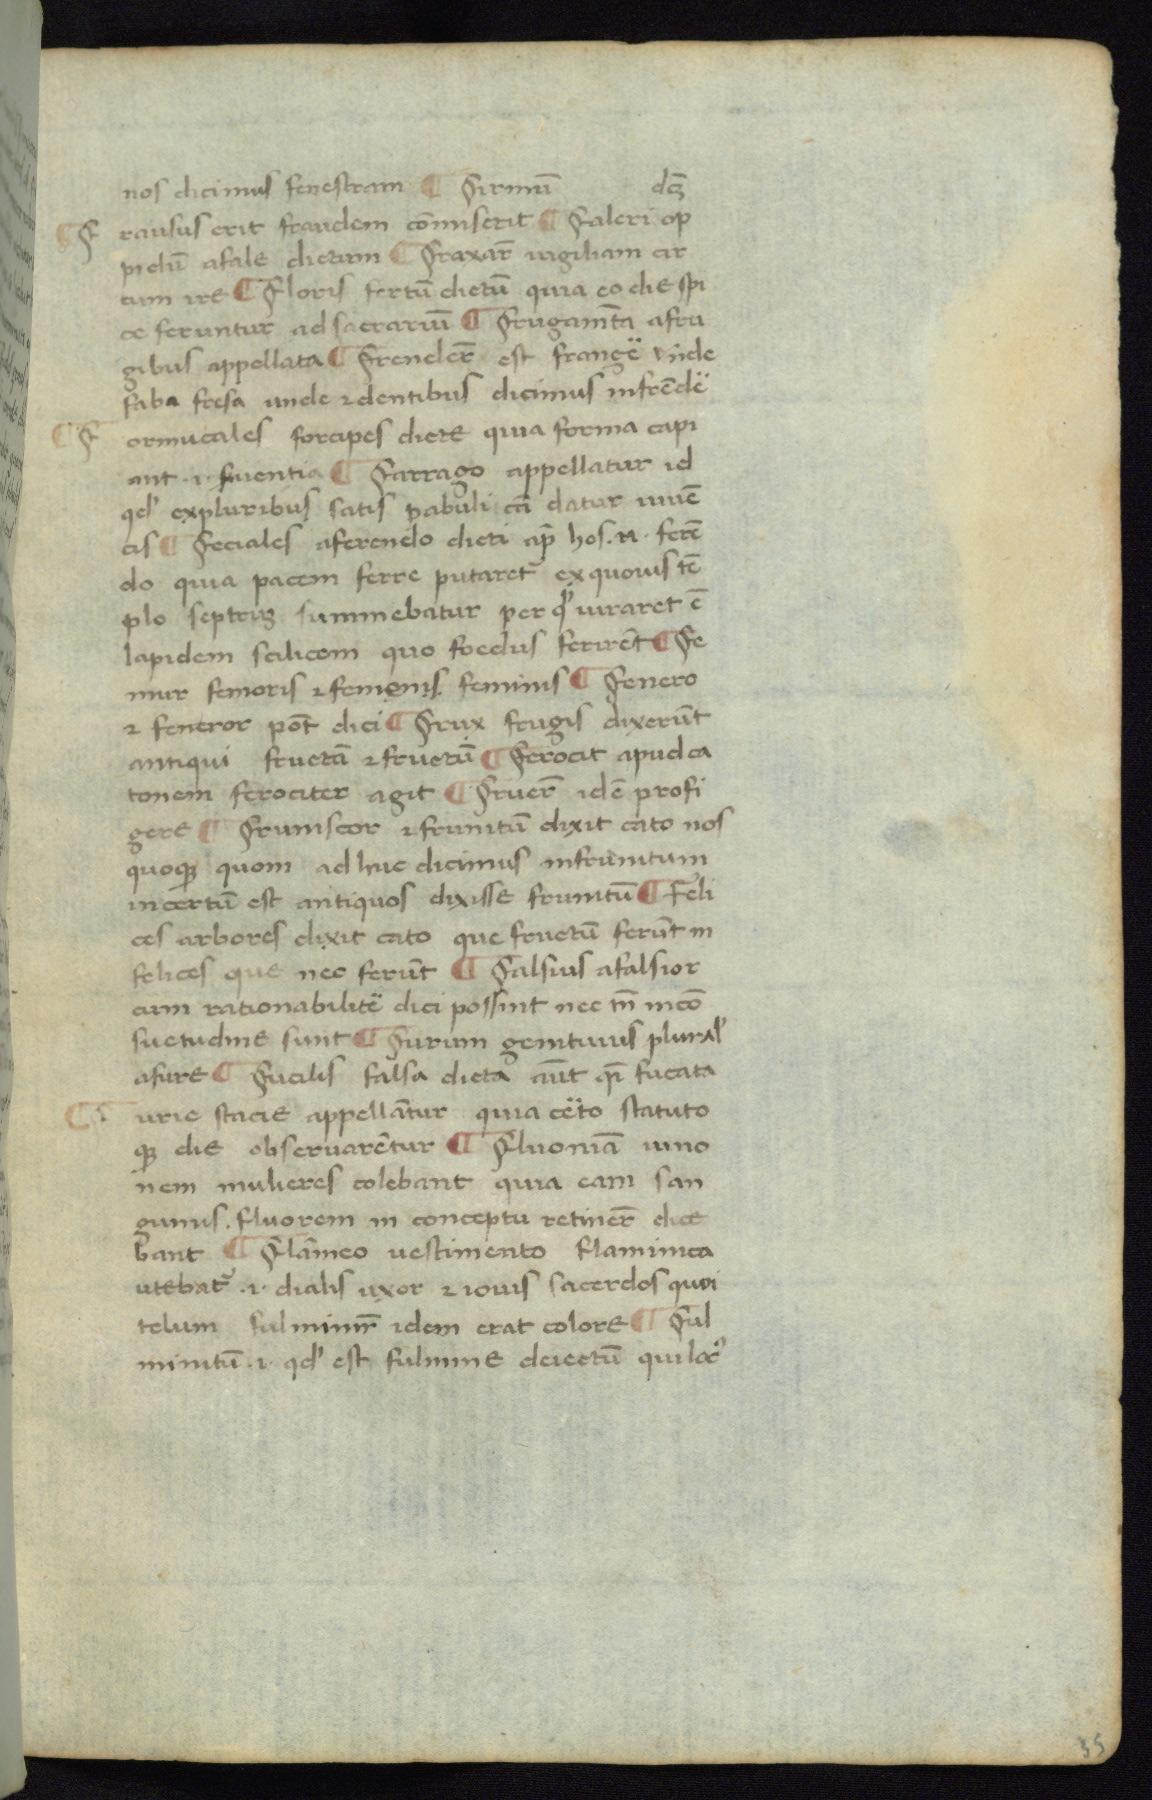 nos dicimus fenestram ¶ Firmiū dcꝫ
¶ F rausus erit fraudem cōmiserit ¶ Faleri op
pidū afale dictum ¶ Fraxar̄ uigiliam cir
cum ire ¶ Floris fertū dictū quia eo die spi
ce feruntur ad sacrariū ¶ Frugamīta afru
gibus appellata ¶ Frender̄ est frange᷑ vnde
faba fresa unde ⁊dentibus dicimus infrēde᷑
¶ F ormucales forcipes dicte quia forma capi
ant ·i· fruentia ¶ Farrago appellatur id
qd' expluribus satis pabuli cā datur iuuē
cis ¶ Feciales aferendo dicti ap̄ hos. n· ferē
do quia pacem ferre putaret᷑ ex quouis tē
plo septrūꝫ summebatur per qd' iuraret ē
lapidem scilicem quo foedus ferirēt ¶ Fe
mur femoris ⁊ feminis feminis ¶ Fenero
⁊ feneror pōt dici ¶ Frux frugis dixerūt
antiqui fructā ⁊ fructū ¶ Ferocit apud ca
tonem ferociter agit ¶ Fruer̄ idē profi
gere ¶ Fruniscor ⁊ frunitū dixit cato nos
quoqꝫ quom ad huc dicimus infrunitum
incertū est antiquos dixisse frunitū ¶ Feli
ces arbores dixit cato que fructū ferūt in
felices que nec ferūt ¶ Falsius afalsior
cum rationabilite᷑ dici possint nec tn̄ incō
suetudine sunt ¶ Furum genitiuus plural'
afure ¶ Fucilis falsa dicta aūt qi᷑ fucata
¶ urie stacie appellātur quia ce᷑to statuto
qꝫ die obseruarētur ¶ Fluoniā iuno
nem mulieres colebant quia eam san
guinis. fluorem in conceptu retiner̄ dice
bant ¶ Flāmeo uestimento flaminica
utebat᷑ ·i· dialis uxor ⁊ iouis sacerdos quoi
telum fulminir̄ idem erat colore ¶ Ful
minitū ·i· qd' est fulmine deiectū qui loc᷒
35